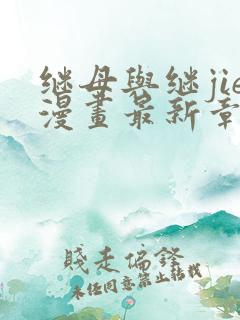 继母與继jie
漫畫最新章
賤走偏鋒
未任同意禁止转载